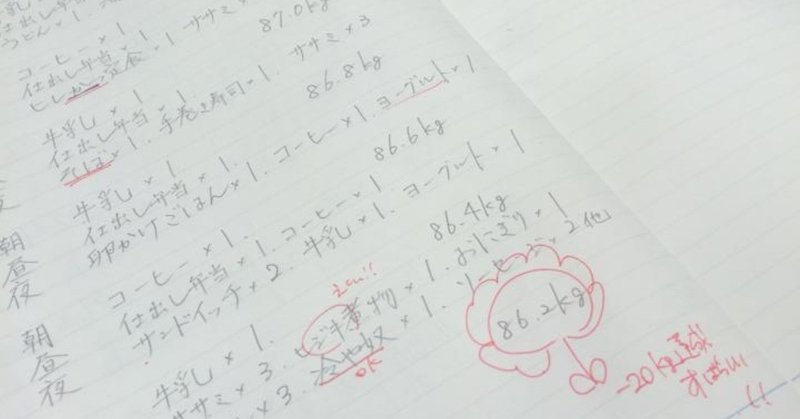 コーヒー×1
仕出し弁当×1
ヒレかつ定食×1 ササミ
87.0kg
牛乳×1
仕出し弁当×1.
そば×1. 手巻き寿司×1. ササミ×3
86.8kg
牛乳×1
仕出し弁当×1. コーヒー×1. ヨーグルト×1
卵かけごはん×1.
86.6kg
朝 コーヒー×1.
昼 仕出し弁当×1. コーヒー×1
夜 サンドイッチ×2. 牛乳×1. ヨーグルト×1
86.4kg
朝 牛乳×1.
昼 ササミ×3. ヒジキ煮物×1. おにぎり×1
夜 ×3. 冷や奴×1. ソーセージ×2 他
えらい!!
OK
86.2kg
-20kg達成!
すばらしい
!!